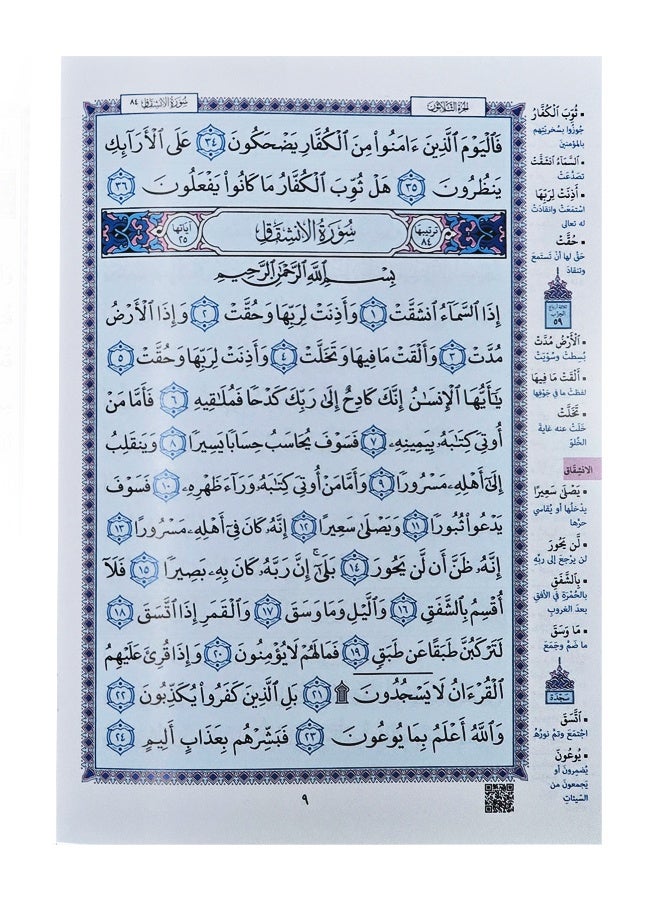 سُورَةُ الِانْشِقَاقِ ٨٤
الجُزءُ الثَّلَاثُونَ
فَٱلْيَوْمَ ٱلَّذِينَ ءَامَنُوا۟ مِنَ ٱلْكُفَّارِ يَضْحَكُونَ ٣٤ عَلَى ٱلْأَرَآئِكِ
يَنظُرُونَ ٣٥ هَلْ ثُوِّبَ ٱلْكُفَّارُ مَا كَانُوا۟ يَفْعَلُونَ ٣٦
ترتيبها ٨٤ سُورَةُ الِانْشِقَاقِ آياتها ٢٥
بِسْمِ ٱللَّهِ ٱلرَّحْمَٰنِ ٱلرَّحِيمِ
إِذَا ٱلسَّمَآءُ ٱنشَقَّتْ ١ وَأَذِنَتْ لِرَبِّهَا وَحُقَّتْ ٢ وَإِذَا ٱلْأَرْضُ
مُدَّتْ ٣ وَأَلْقَتْ مَا فِيهَا وَتَخَلَّتْ ٤ وَأَذِنَتْ لِرَبِّهَا وَحُقَّتْ ٥
يَٰٓأَيُّهَا ٱلْإِنسَٰنُ إِنَّكَ كَادِحٌ إِلَىٰ رَبِّكَ كَدْحًا فَمُلَٰقِيهِ ٦ فَأَمَّا مَنْ
أُوتِىَ كِتَٰبَهُۥ بِيَمِينِهِۦ ٧ فَسَوْفَ يُحَاسَبُ حِسَابًا يَسِيرًا ٨ وَيَنقَلِبُ
إِلَىٰٓ أَهْلِهِۦ مَسْرُورًا ٩ وَأَمَّا مَنْ أُوتِىَ كِتَٰبَهُۥ وَرَآءَ ظَهْرِهِۦ ١٠ فَسَوْفَ
يَدْعُوا۟ ثُبُورًا ١١ وَيَصْلَىٰ سَعِيرًا ١٢ إِنَّهُۥ كَانَ فِىٓ أَهْلِهِۦ مَسْرُورًا ١٣
إِنَّهُۥ ظَنَّ أَن لَّن يَحُورَ ١٤ بَلَىٰٓ ۚ إِنَّ رَبَّهُۥ كَانَ بِهِۦ بَصِيرًا ١٥ فَلَآ
أُقْسِمُ بِٱلشَّفَقِ ١٦ وَٱلَّيْلِ وَمَا وَسَقَ ١٧ وَٱلْقَمَرِ إِذَا ٱتَّسَقَ ١٨
لَتَرْكَبُنَّ طَبَقًا عَن طَبَقٍ ١٩ فَمَا لَهُمْ لَا يُؤْمِنُونَ ٢٠ وَإِذَا قُرِئَ عَلَيْهِمُ
ٱلْقُرْءَانُ لَا يَسْجُدُونَ ۩ ٢١ بَلِ ٱلَّذِينَ كَفَرُوا۟ يُكَذِّبُونَ ٢٢
وَٱللَّهُ أَعْلَمُ بِمَا يُوعُونَ ٢٣ فَبَشِّرْهُم بِعَذَابٍ أَلِيمٍ ٢٤
٩
▪ ثُوِّبَ ٱلْكُفَّارُ
جُوزُوا بسُخريَتِهم
بالمؤمنين
▪ ٱلسَّمَآءُ ٱنشَقَّتْ
تَصَدَّعَتْ
▪ أَذِنَتْ لِرَبِّهَا
استَمَعَتْ وانقادَتْ
له تعالى
▪ حُقَّتْ
حَقَّ لها أنْ تَستَمِعَ
وتنقادَ
ثلاثة أرباع
الحزب
٥٩
▪ ٱلْأَرْضُ مُدَّتْ
بُسِطَتْ وسُوِّيَتْ
▪ أَلْقَتْ مَا فِيهَا
لفظتْ ما في جَوْفِها
▪ تَخَلَّتْ
خَلَتْ عنه غايةَ
الخُلُوّ
الانشِقَاق
▪ يَصْلَىٰ سَعِيرًا
يدخلُها أو يُقاسِي
حرَّها
▪ لَّن يَحُورَ
لن يرجعَ إلى ربِّهِ
▪ بِٱلشَّفَقِ
بالحُمْرَةِ في الأفقِ
بعدَ الغروبِ
▪ مَا وَسَقَ
ما ضَمَّ وجَمَعَ
سَجْدَة
▪ ٱتَّسَقَ
اجتَمَعَ وتمَّ نورُهُ
▪ يُوعُونَ
يُضمِرونَ أو
يَجمعونَ من
السيّئاتِ